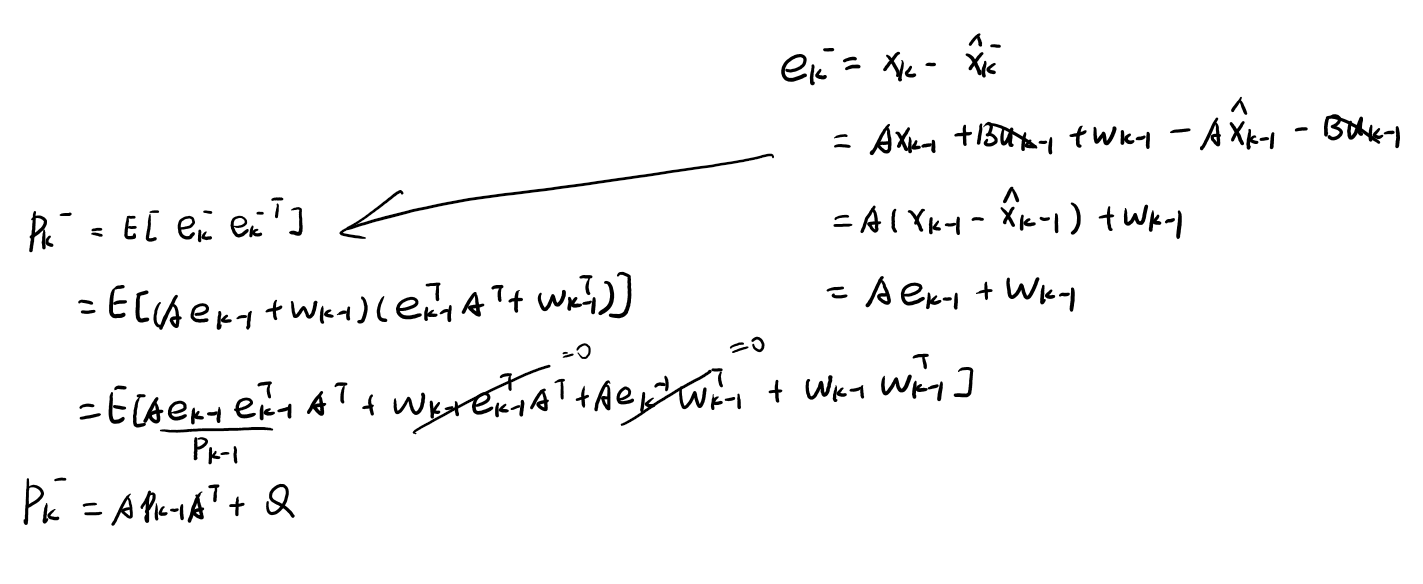 e_k^- = x_k - x̂_k^-
= Ax_{k-1} + Bu_{k-1} + w_{k-1} - Ax̂_{k-1} - Bu_{k-1}
= A(x_{k-1} - x̂_{k-1}) + w_{k-1}
= Ae_{k-1} + w_{k-1}
P_k^- = E[e_k^- e_k^{-T}]
= E[(Ae_{k-1} + w_{k-1})(e_{k-1}^T A^T + w_{k-1}^T)]
=0 =0
= E[Ae_{k-1} e_{k-1}^T A^T + w_{k-1} e_{k-1}^T A^T + Ae_{k-1} w_{k-1}^T + w_{k-1} w_{k-1}^T]
P_{k-1}
P_k^- = AP_{k-1}A^T + Q